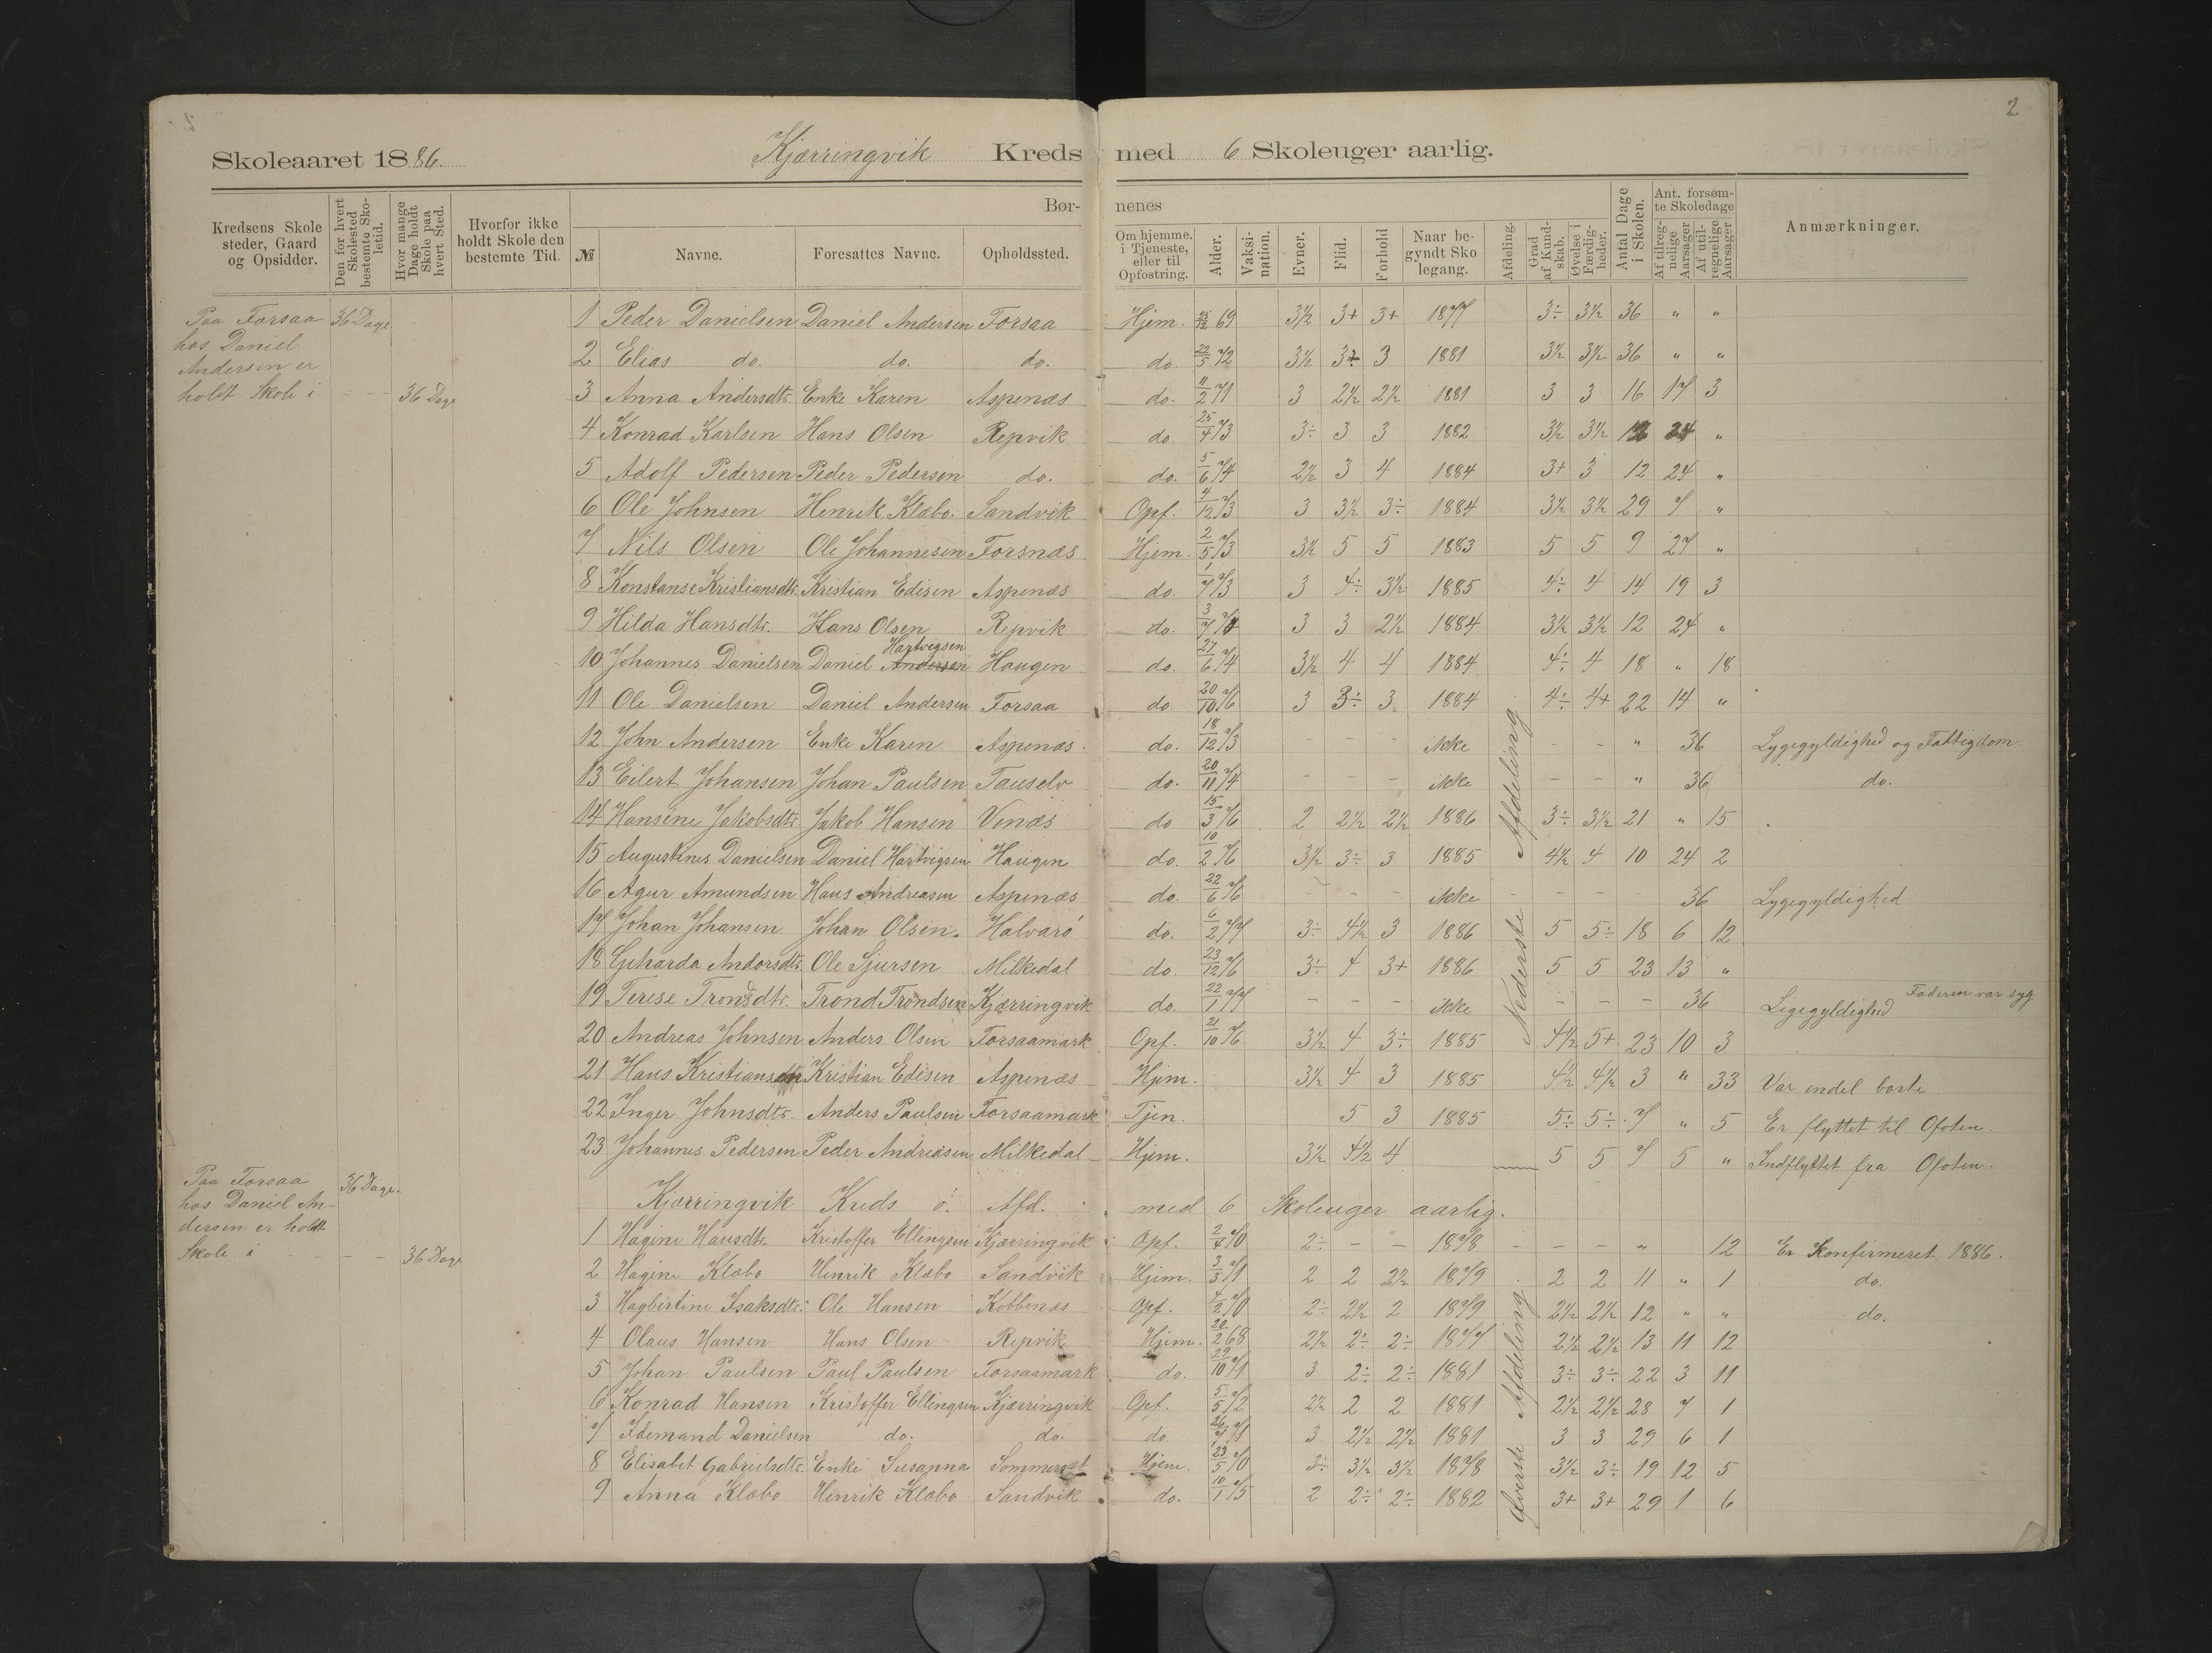 2
Skoleaaret 1886. Kjærringvik Kreds med 6 Skoleuger aarlig.
Kredsens Skolesteder, Gaard og Opsidder. Den for hvert Skolested bestemte Skoletid. Hvor mange Dage holdt Skole paa hvert Sted. Hvorfor ikke holdt Skole den bestemte Tid. Børnenes
№ Navne. Foresattes Navne. Opholdssted. Om hjemme, i Tjeneste, eller til Opfostring. Alder. Vaksination. Evner. Flid. Forhold Naar begyndt Skolegang. Afdeling. Grad af Kundskab. Øvelse i Færdigheder. Antal Dage i Skolen. Ant. forsømte Skoledage Af tilregnelige Aarsager Af utilregnelige Aarsager Anmærkninger.
Paa Forsaa 36 Dage
hos Daniel
Andersen er
holdt Skole i 36 Dage
1 Peder Danielsen Daniel Andersen Forsaa Hjem. 25/12 69 3½ 3+ 3+ 1877 3÷ 3½ 36 " "
2 Elias do. do. do. do. 22/5 72 3½ 3÷ 3 1881 3½ 3½ 36 " "
3 Anna Andersdtr. Enke Karen Aspenæs do. 11/2 71 3 2½ 2½ 1881 3 3 16 17 3
4 Konrad Karlsen Hans Olsen Repvik do. 25/4 73 3÷ 3 3 1882 3½ 3½ 12 24 "
5 Adolf Pedersen Peder Pedersen do. do. 5/6 74 2½ 3 4 1884 3+ 3 12 24 "
6 Ole Johnsen Henrik Klæbo. Sandvik Opf. 4/12 73 3 3½ 3÷ 1884 3½ 3½ 29 7 "
7 Nils Olsen Ole Johannesen Forsnæs Hjem. 2/5 73 3½ 5 5 1883 5 5 9 27 "
8 Konstanse Kristiansdtr. Kristian Edisen Aspenæs do. 1/7 73 3 4÷ 3½ 1885 4÷ 4 14 19 3
9 Hilda Hansdtr. Hans Olsen Repvik do. 3/7 3 3 2½ 1884 3½ 3½ 12 24 "
10 Johannes Danielsen Daniel Andersen Hartvigsen Haugen do. 27/6 74 3½ 4 4 1884 4÷ 4 18 " 18
11 Ole Danielsen Daniel Andersen Forsaa do 20/10 76 3 3÷ 3 1884 4÷ 4+ 22 14 "
12 John Andersen Enke Karen Aspenæs do. 18/12 73 – – – ikke – – " 36 Lygegyldighed og Fattigdom
13 Eilert Johansen Johan Paulsen Tauselv do. 20/11 74 – – – ikke – – " 36 do.
14 Hansine Jakobsdtr. Jakob Hansen Venæs do 15/3 76 2 2½ 2½ 1886 3÷ 3½ 21 " 15
15 Augustines Danielsen Daniel Hartvigsen Haugen do. 10/2 76 3½ 3÷ 3 1885 4½ 4 10 24 2
16 Agur Amundsen Hans Andreasen Aspenæs do. 22/6 76 – – – ikke – – – 36 Lygegyldighed
17 Johan Johansen Johan Olsen. Halvarö do. 6/2 77 3÷ 4½ 3 1886 5 5÷ 18 6 12
18 Geharda Andorsdtr. Ole Sjursen Milkedal do. 23/12 76 3÷ 4 3+ 1886 5 5 23 13 "
19 Terese Trondsdtr. Trond Trondsen Kjærringvik do. 22/1 77 – – – ikke – – – 36 Ligegyldighed Faderen var syg
20 Andreas Johnsen Anders Olsen Forsaamark Opf. 21/10 76 3½ 4 3÷ 1885 4½ 5+ 23 10 3
21 Hans Kristiansen Kristian Edisen Aspenæs Hjem. 3½ 4 3 1885 4½ 4½ 3 " 33 Var endel borte
22 Inger Johnsdtr. Anders Paulsen Forsaamark Tjen. 5 3 1885 5÷ 5÷ 7 " 5 Er flyttet til Ofoten.
23 Johannes Pedersen Peder Andreasen Milkedal Hjem. 3½ 4½ 4 5 5 7 5 " Indflyttet fra Ofoten.
Nederste Afdeling
Paa Forsaa 36 Dage.
hos Daniel An-
dersen er holdt
Skole i 36 Dage
Kjærringvik Kreds ö. Afd. med 6 Skoleuger aarlig.
1 Hagine Hansdtr. Kristoffer Ellingsen Kjærringvik Opf. 2/4 70 2÷ – – 1878 – – – " 12 Er Konfirmeret 1886.
2 Hagine Klæbo Henrik Klæbo Sandvik Hjem. 3/3 71 2 2 2½ 1879 2 2 11 " 1 do.
3 Hagbertine Isaksdtr. Ole Hansen Kobbenæs Opf. 4/2 70 2÷ 2½ 2 1879 2½ 2½ 12 " " do.
4 Olaus Hansen Hans Olsen Repvik Hjem. 20/2 68 2½ 2÷ 2÷ 1877 2½ 2½ 13 11 12
5 Johan Paulsen Paul Paulsen Forsaamark do. 29/10 71 3 2÷ 2÷ 1881 3÷ 3÷ 22 3 11
6 Konrad Hansen Kristoffer Ellingsen Kjærringvik Opf. 5/5 72 2½ 2 2 1881 2½ 2½ 28 7 1
7 Idemand Danielsen do. do. do 26/7 71 3 2½ 2½ 1881 3 3 29 6 1
8 Elisabet Gabrielsdtr. Enke Susanna Sommerset Hjem. 23/5 70 3÷ 3½ 3½ 1878 3½ 3÷ 19 12 5
9 Anna Klæbo Henrik Klæbo Sandvik do. 10/1 75 2 2÷ 2÷ 1882 3+ 3+ 29 1 6
Øverste Afdeling